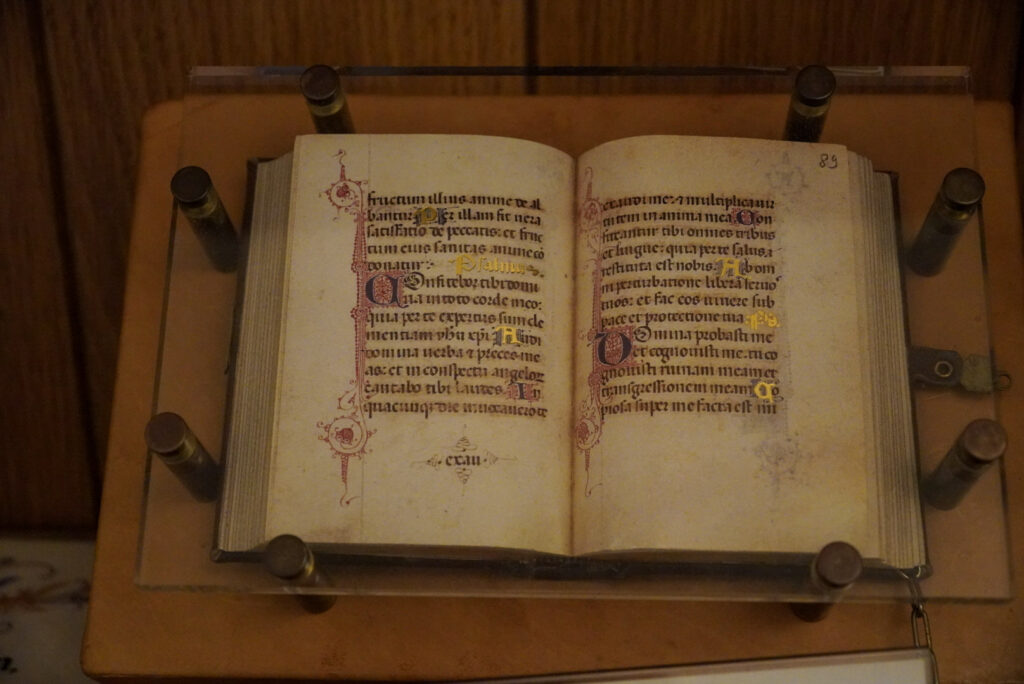 fructum illius anime de al
bantur Per illam fit vera
satisfatio de peccatis: et fruc
tum eius sanitas anime co
donatur: Psalmus.
Confitebor tibi domi
na in toto corde meo:
quia per te expertus sum cle
mentiam yhu xpi Audi
domina verba & preces me
as: et in conspectu angelor
cantabo tibi laudes In
quacunq die inuocauero te
exau
me: & multiplica uir
tutem in anima mea Con
fiteantur tibi omnes tribus
et lingue: quia per te salus
restituta est nobis. Ab om
ni perturbatione libera seruos
tuos: et fac eos uiuere sub
pace et protectione tua Ps.
Domina probasti me
et cognouisti me. tu co
gnouisti ruinam meam et
transgressionem meam Co
piosa super me facta est mi
89